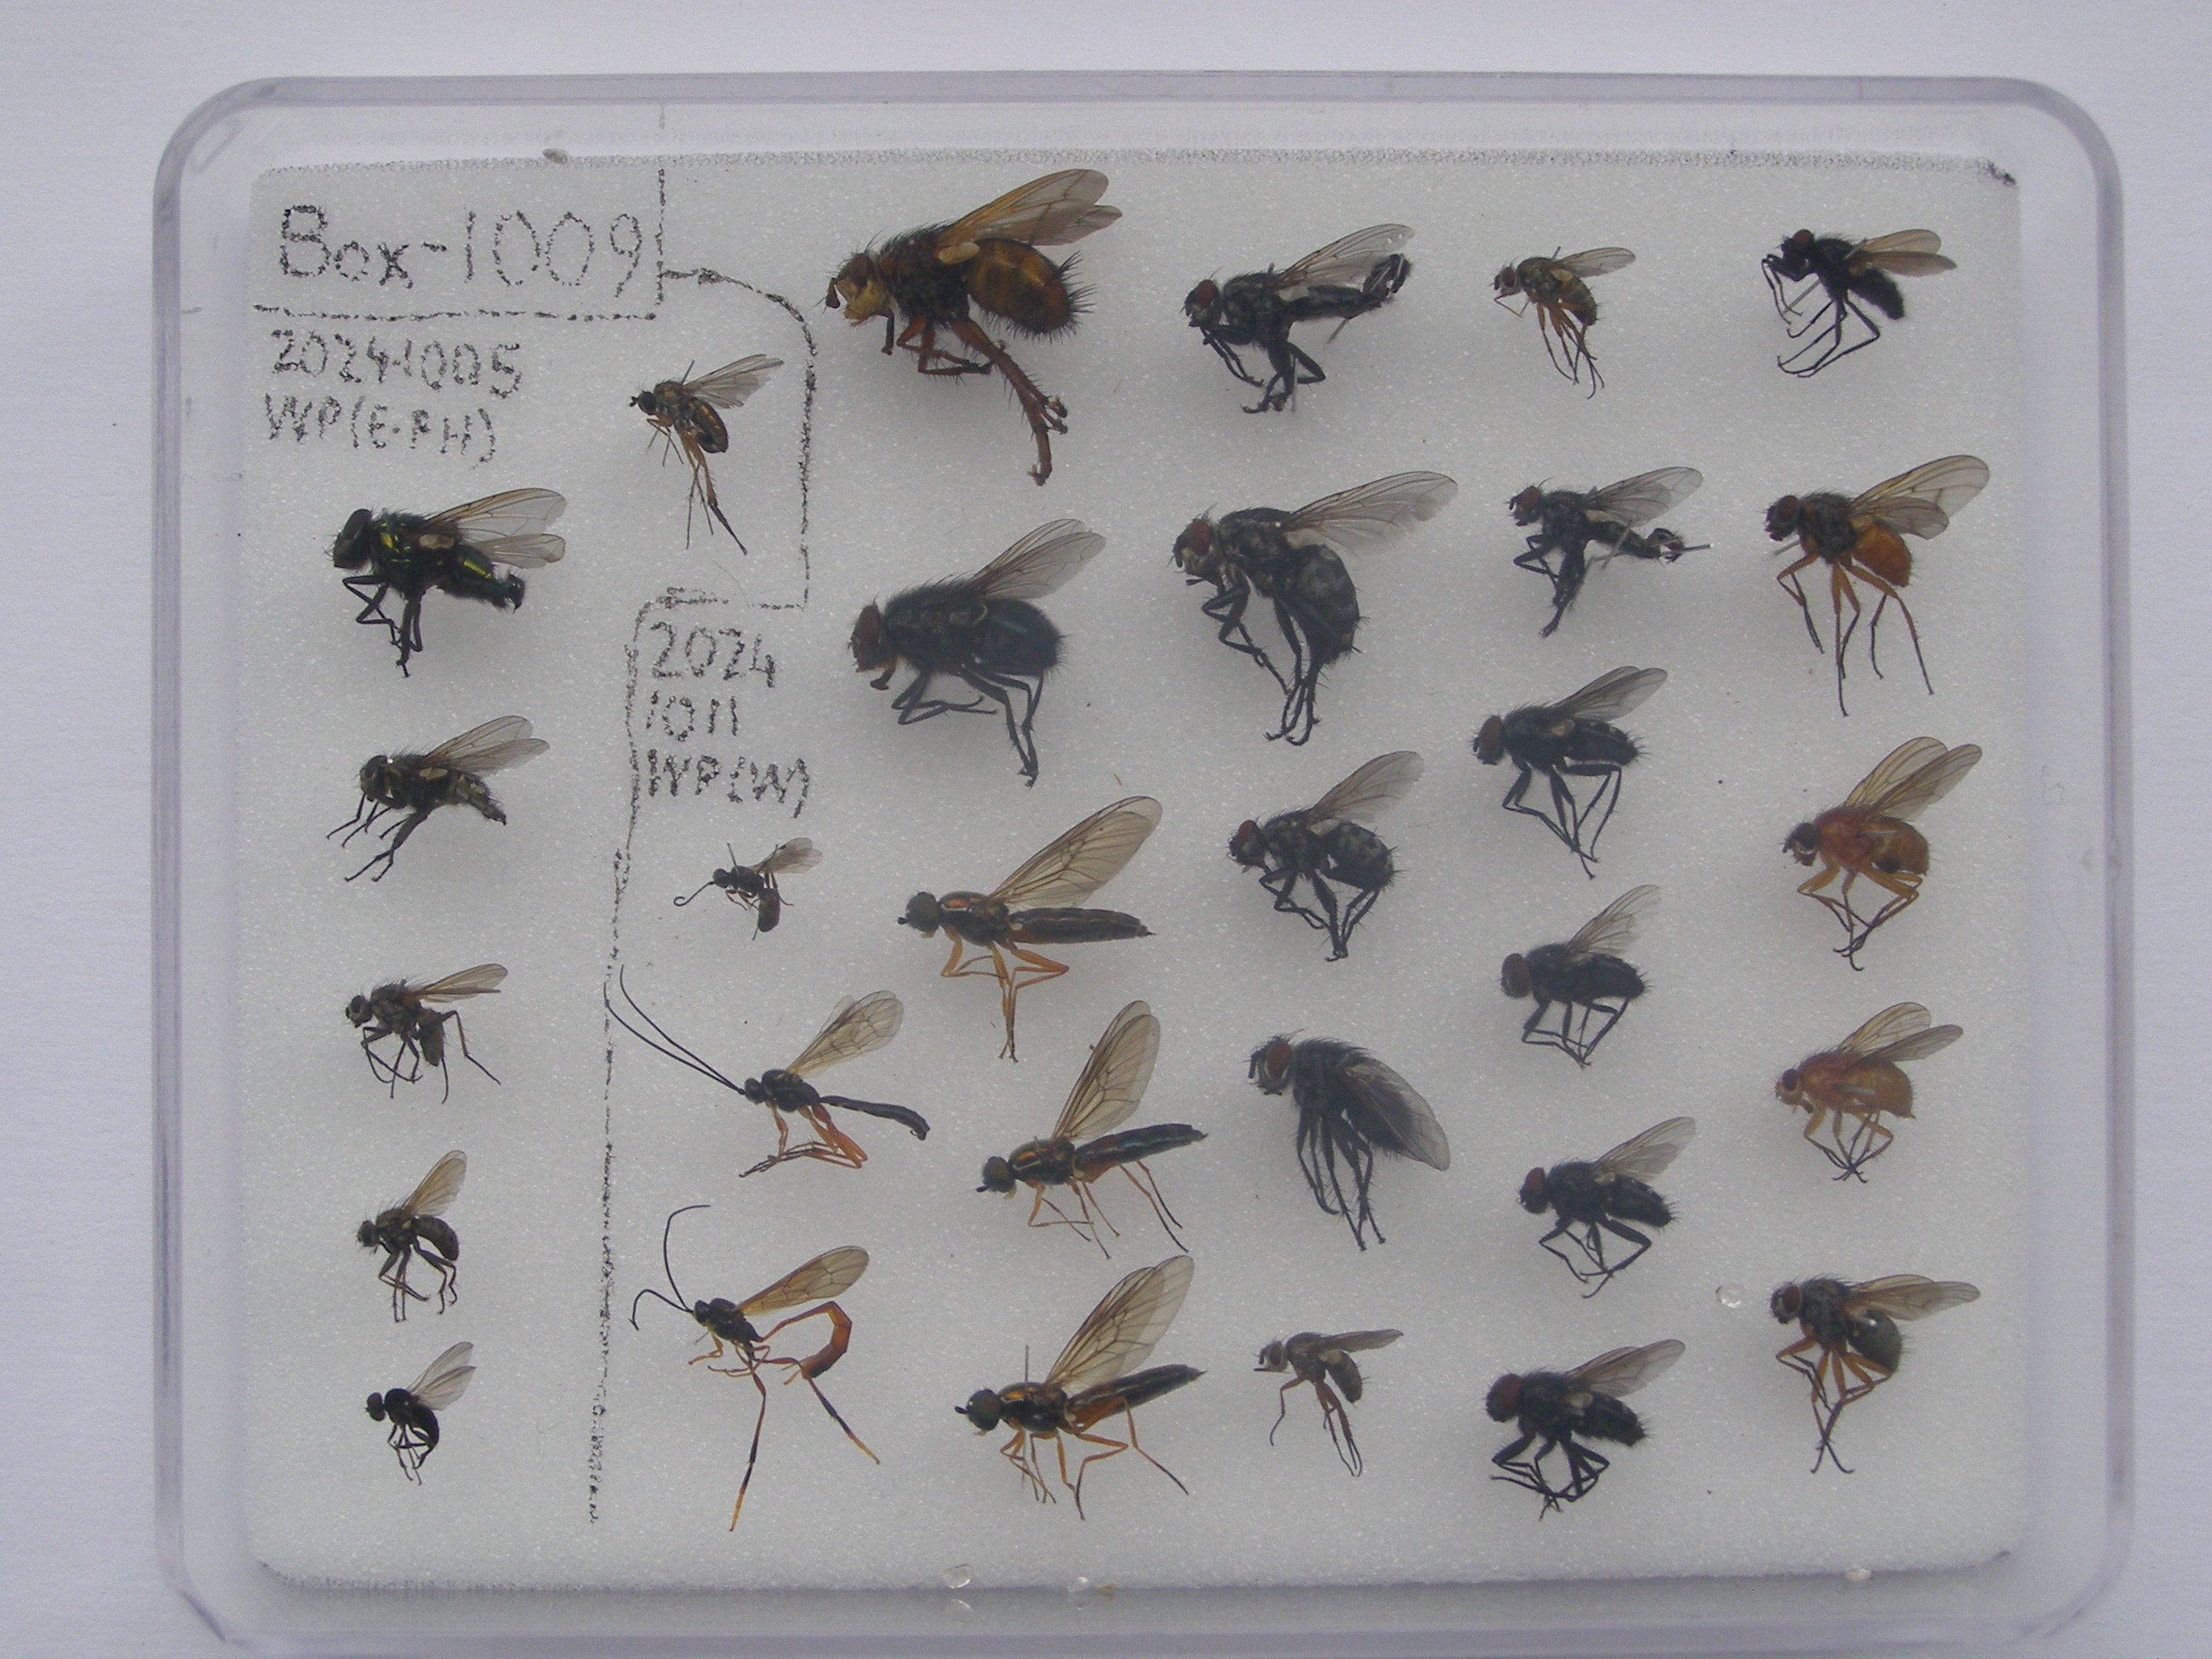 Box-1009
20241005
WP(E-PH)
2024
1011
WP(W)